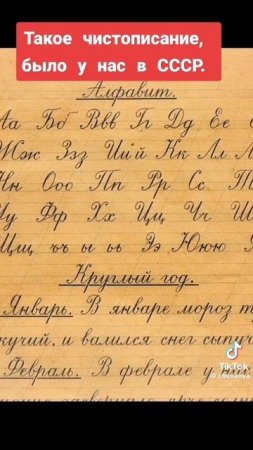 Такое чистописание,
было у нас в СССР.
Алфавит.
Аа Бб Ввв Гг Дд Ее
Жж Ззз Ии й Кк Лл
Нн Ооо Пп Рр Сс. Т
Уу Фф Хх Цц Чч Ш
Щщ ъъ ы ьь Ээ Юю Я
Круглый год.
Январь. В январе мороз т
кучий, и валился снег сыпуч
Февраль. В феврале у н
TikTok